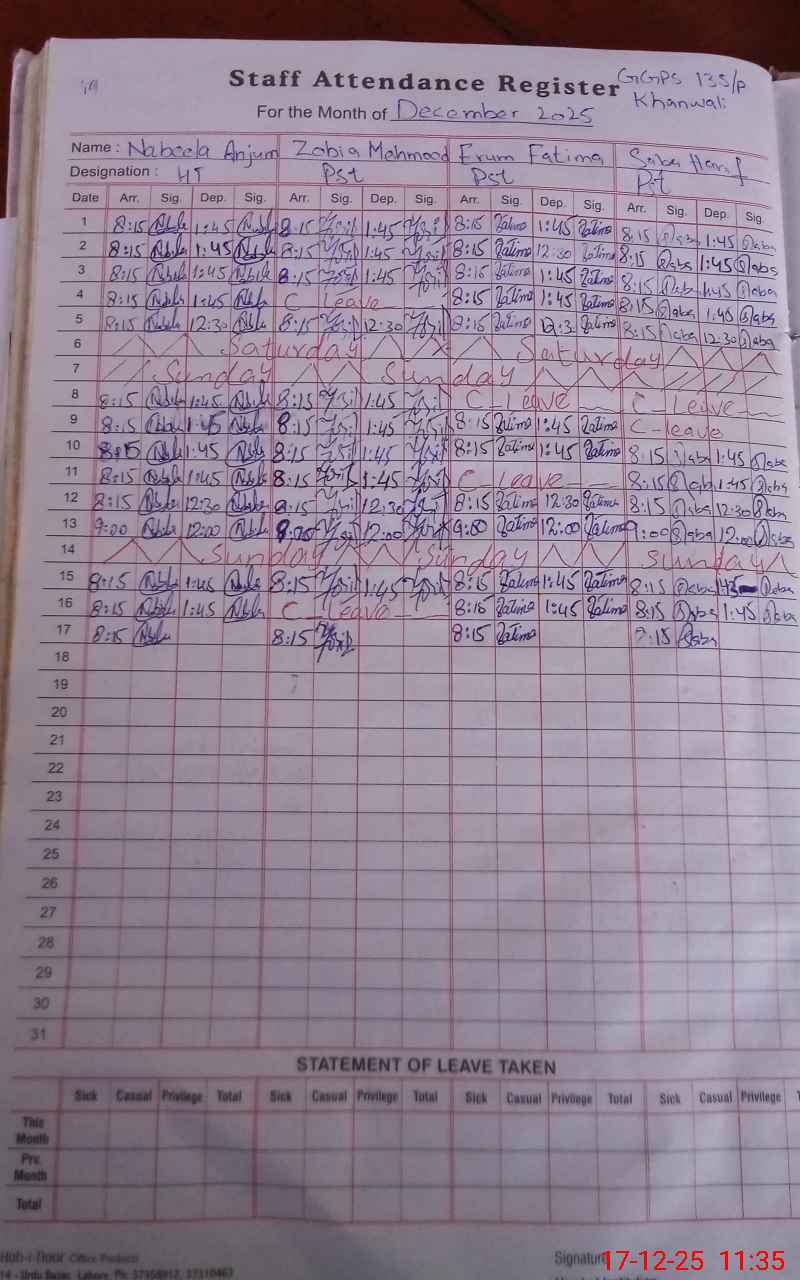 Staff Attendance Register GGPS 135/P
Khanwali
For the Month of December 2025
Name : Nabeela Anjum Zobia Mehmood Erum Fatima Saba Hanif
Designation : HT Pst Pst Pst
Date Arr. Sig. Dep. Sig. Arr. Sig. Dep. Sig. Arr. Sig. Dep. Sig. Arr. Sig. Dep. Sig.
1 8:15 1:45 8:15 1:45 8:15 Fatima 1:45 Fatima 8:15 Saba 1:45 Saba
2 8:15 1:45 8:15 1:45 8:15 Fatima 12:30 Fatima 8:15 Saba 1:45 Saba
3 8:15 1:45 8:15 1:45 8:15 Fatima 1:45 Fatima 8:15 Saba 1:45 Saba
4 8:15 1:45 C Leave 8:15 Fatima 1:45 Fatima 8:15 Saba 1:45 Saba
5 8:15 12:30 8:15 12:30 8:15 Fatima 12:3 Fatima 8:15 Saba 12:30 Saba
6 Saturday Saturday
7 Sunday Sunday
8 8:15 1:45 8:15 1:45 C - Leave C - Leave
9 8:15 1:45 8:15 1:45 8:15 Fatima 1:45 Fatima C - leave
10 8:15 1:45 8:15 1:45 8:15 Fatima 1:45 Fatima 8:15 Saba 1:45 Saba
11 8:15 1:45 8:15 1:45 C - Leave 8:15 Saba 1:45 Saba
12 8:15 12:30 8:15 12:30 8:15 Fatima 12:30 Fatima 8:15 Saba 12:30 Saba
13 9:00 12:00 9:00 12:00 9:00 Fatima 12:00 Fatima 9:00 Saba 12:00 Saba
14 Sunday Sunday Sunday
15 8:15 1:45 8:15 1:45 8:15 Fatima 1:45 Fatima 8:15 Saba Saba
16 8:15 1:45 C - Leave 8:15 Fatima 1:45 Fatima 8:15 Saba 1:45 Saba
17 8:15 8:15 8:15 Fatima Saba
18
19
20
21
22
23
24
25
26
27
28
29
30
31
STATEMENT OF LEAVE TAKEN
Sick Casual Privilege Total Sick Casual Privilege Total Sick Casual Privilege Total Sick Casual Privilege
This Month
Prv. Month
Total
Office Products
Signature
17-12-25 11:35